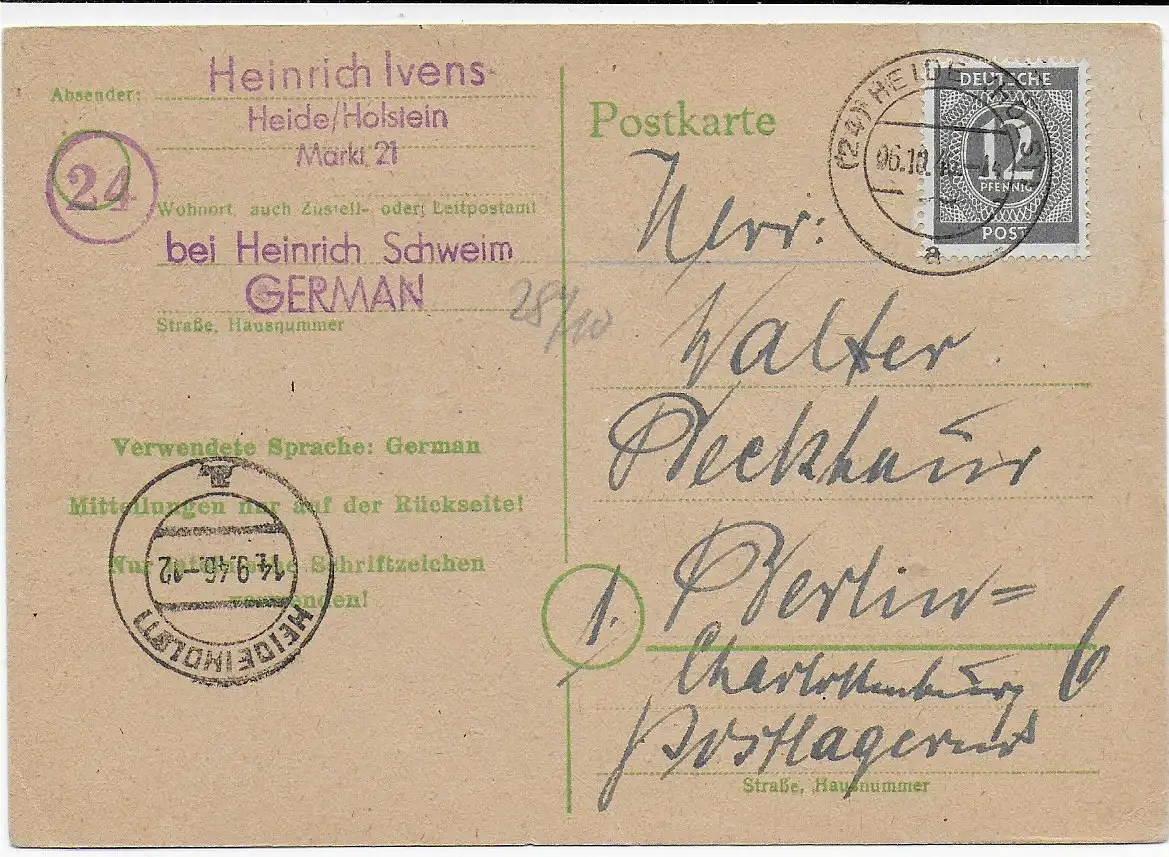 Absender:
Heinrich Ivens
Heide/Holstein
Markt 21
24
Wohnort, auch Zustell- oder Leitpostamt
bei Heinrich Schweim
GERMAN
Straße, Hausnummer
28/10
Verwendete Sprache: German
Mitteilungen nur auf der Rückseite!
Nur lateinische Schriftzeichen
verwenden!
14.9.46.-12
HEIDE(HOLST)
Postkarte
(24) HEIDE (HOLST)
06.10.46-14
a
DEUTSCHE
12
PFENNIG
POST
Herr:
Walter
Berlin=
1.
Charlottenburg 6
Postlagernd
Straße, Hausnummer